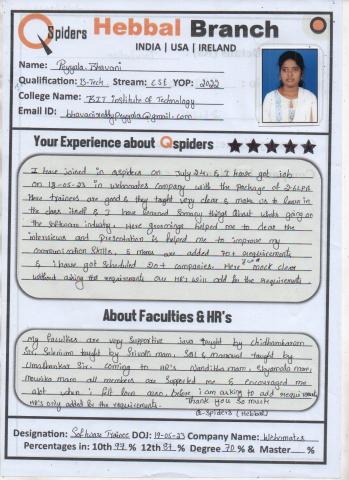 Qspiders Hebbal Branch
INDIA | USA | IRELAND
Name: Peyyala Bhavani
Qualification: B-Tech Stream: CSE YOP: 2022
College Name: BIT institute of Technology
Email ID: bhavanireddypeyyala@gmail.com
Your Experience about Qspiders
I have joined in qspiders on July 24, & I have got job
on 18-05-23 in webomates company with the package of 2.6LPA
Here trainers are good & they taught very clear & make us to learn in
the class itself & I have learned so many things about whats going on
the software industry. Here groomings helped me to clear the
interviews and presentation is helped me to improve my
communication skills, & mam are added 70+ requirements
& i have got scheduled 20+ companies. Here mock clear
without asking the requirements our HR's will add for the requirements
About Faculties & HR's
My Faculties are very supportive java taught by chidhambaram
Sir, Selenium taught by Srivalli mam, SQL & manual taught by
Umashankar Sir. coming to HR's Nanditha mam, Shyamala mam,
Mounika mam all members are supported me & encouraged me
alot when i felt low also, before i am asking to add requirements
HR's only added for the requirements. Thank you so much
Q-Spiders (Hebbal)
Designation: Software Trainee DOJ: 19-05-23 Company Name: Webomates
Percentages in: 10th 97 % 12th 87 % Degree 70 % & Master %